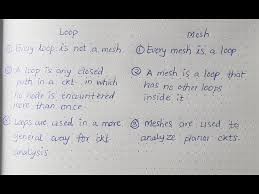 Loop
① Every loop is not a mesh.
② A loop is any closed
path in a ckt. in which
no node is encountered
more than once.
③ Loops are used in a more
general way for ckt
analysis.
Mesh
① Every mesh is a loop
② A mesh is a loop that
has no other loops
inside it.
③ Meshes are used to
analyze planar ckts.